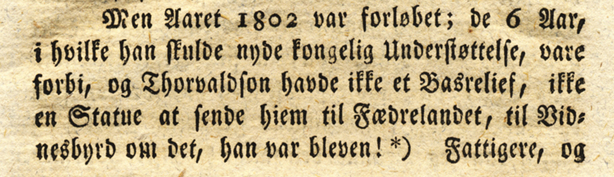 Men Aaret 1802 var forløbet; de 6 Aar,
i hvilke han skulde nyde kongelig Understøttelse, vare
forbi, og Thorvaldson havde ikke et Basrelief, ikke
en Statue at sende hiem til Fædrelandet, til Vid-
nesbyrd om det, han var bleven! *) Fattigere, og